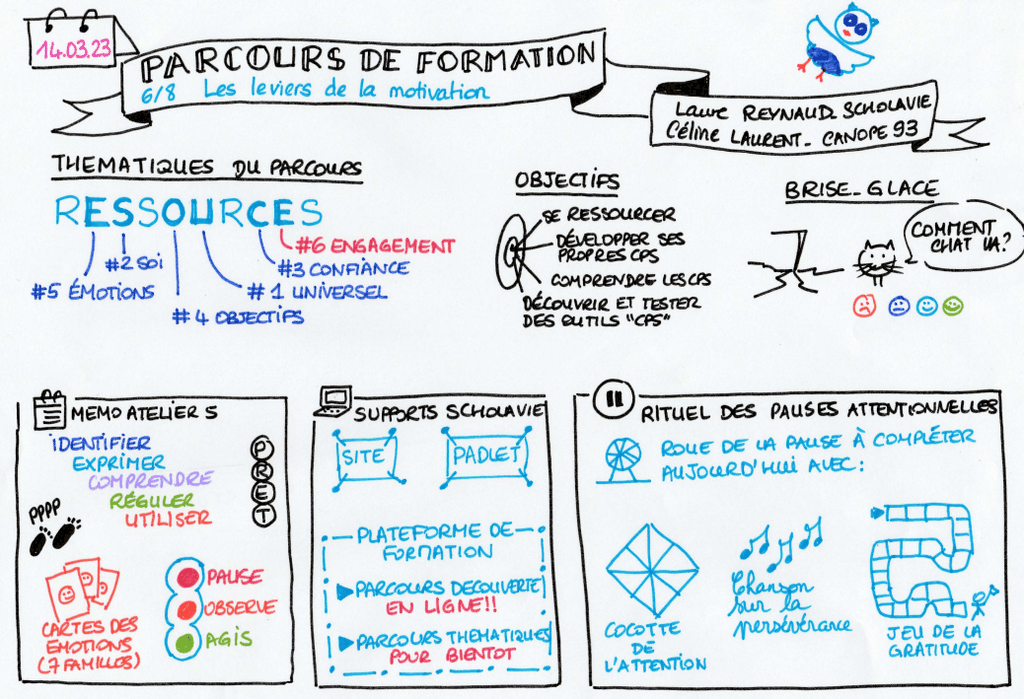 14.03.23
PARCOURS DE FORMATION
6/8 Les leviers de la motivation
Laure REYNAUD_SCHOLAVIE
Céline LAURENT_ CANOPE 93
THEMATIQUES DU PARCOURS
RESSOURCES
#6 ENGAGEMENT
#2 SOI
#3 CONFIANCE
#5 ÉMOTIONS
#1 UNIVERSEL
#4 OBJECTIFS
OBJECTIFS
SE RESSOURCER
DÉVELOPPER SES
PROPRES CPS
COMPRENDRE LES CPS
DÉCOUVRIR ET TESTER
DES OUTILS "CPS"
BRISE_GLACE
COMMENT
CHAT VA?
MEMO ATELIER 5
IDENTIFIER
EXPRIMER
COMPRENDRE
RÉGULER
UTILISER
PRET
PPPP
CARTES DES
ÉMOTIONS
(7 FAMILLES)
PAUSE
OBSERVE
AGIS
SUPPORTS SCHOLAVIE
SITE
PADLET
PLATEFORME DE
FORMATION
PARCOURS DECOUVERTE
EN LIGNE!!
PARCOURS THEMATIQUES
POUR BIENTOT
RITUEL DES PAUSES ATTENTIONNELLES
ROUE DE LA PAUSE À COMPLÉTER
AUJOURD'HUI AVEC:
COCOTTE
DE
L'ATTENTION
Chanson
sur la
persévérance
JEU DE LA
GRATITUDE